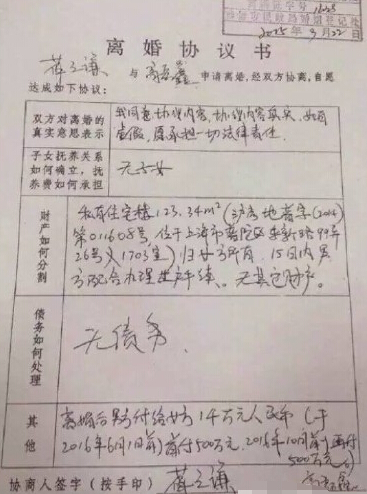 2015年3月22日
离婚协议书
薛之谦 与 高磊鑫 申请离婚,经双方协商,自愿
达成如下协议:
双方对离婚的
真实意思表示
我同意协议内容,协议内容真实,如有
虚假,愿承担一切法律责任.
子女抚养关系
如何确立,抚
养费如何承担
无子女
财产如何分割
私有住宅楼123.34m²(沪房地普字(2014)
第011608号,位于上海市普陀区
26号1703室)归女方所有,15日内男
方配合办理过户手续。无其它财产。
债务如何处理
无债务
其他
离婚后男方付给女方1千万元人民币(于
2016年6月1日前)首付500万元,2016年10月前再付
500万元)
协商人签字(按手印) 薛之谦 高磊鑫